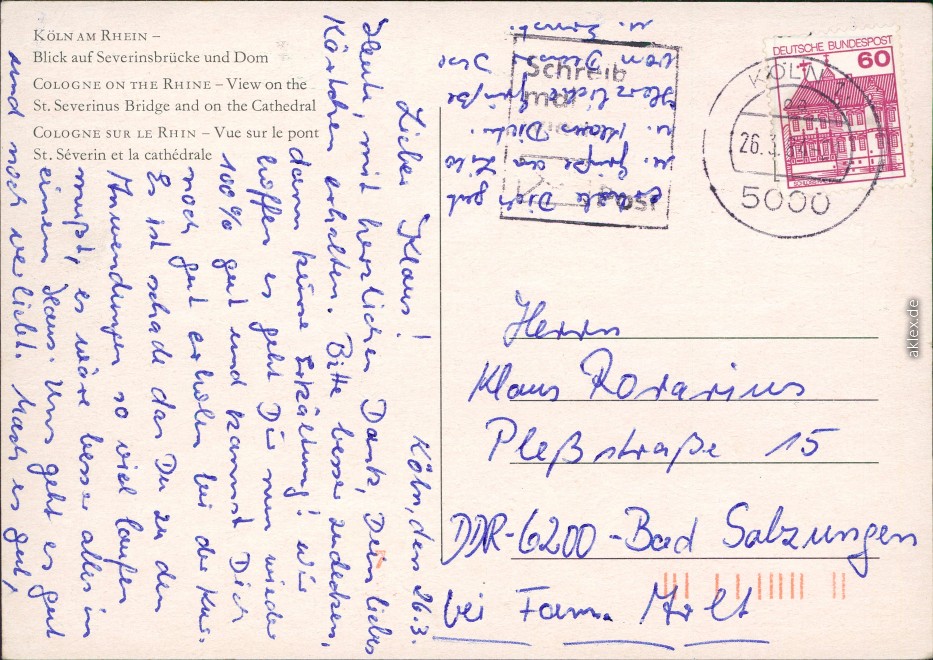 KÖLN AM RHEIN –
Blick auf Severinsbrücke und Dom
COLOGNE ON THE RHINE – View on the
St. Severinus Bridge and on the Cathedral
COLOGNE SUR LE RHIN – Vue sur le pont
St. Séverin et la cathédrale
Köln, den 26.3.
Lieber Klaus!
Heute, mit herzlichen Dank, Dein liebes
Kärtchen erhalten. Bitte besser zudecken,
dann keine Erkältung! Wir
hoffen es geht Dir nun wieder
100% gut und kannst Dich
noch gut erholen bei der Kur.
Es ist schade das Du zu den
Anwendungen so viel laufen
mußt, es wäre besser alles in
einem Haus. Uns geht es gut
und noch verliebt. Mach es gut,
Dich
u. grüße
u. Klaus Dieter.
Herzliche Grüße
von
u.
Schreib
mal
DEUTSCHE BUNDESPOST
60
KÖLN 1
26.3.
5000
Herrn
Klaus Rorarius
Pleßstraße 15
DDR-6200-Bad Salzungen
bei Fam.
aklex.de